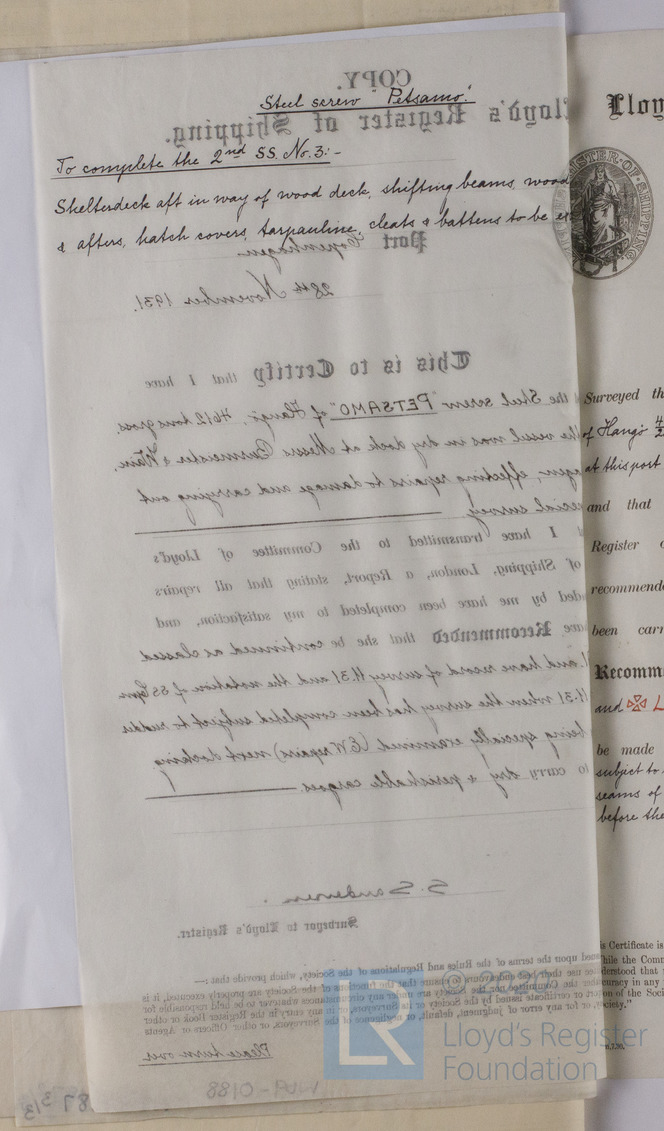 COPY.
Steel screw "Petsamo."
Lloyd's Register of Shipping.
To complete the 2nd SS. No. 3: -
Shelterdeck aft in way of wood deck, shifting beams, wood
& afters, hatch covers, tarpaulins, cleats & battens to be
Port Copenhagen
28th November 1931.
This is to Certify that I have
the Steel screw "PETSAMO" of Hangö, 4612 tons gross,
the vessel was in dry dock at Messrs Burmeister & Wain,
effecting repairs to damage and carrying out
special survey
I have transmitted to the Committee of Lloyd's
of Shipping, London, a Report, stating that all repairs
by me have been completed to my satisfaction, and
Recommended that she be continued as classed
and have record of survey 11.31 and the notation of SS Cpn
11.31 when the survey has been completed subject to rudder
being specially examined (EW repairs) next docking
to carry dry & perishable cargoes.
S. Sandersen.
Surveyor to Lloyd's Register.
upon the terms of the Rules and Regulations of the Society, which provide that :—
use their best endeavours to ensure that the functions of the Society are properly executed, it is
the Committee nor the Society are under any circumstances whatever to be held responsible for
or certificate issued by the Society or its Surveyors, or in any entry in the Register Book or other
or for any error of judgment, default, or negligence of the Surveyors, or other Officers or Agents
Please turn over
W14-0188
Lloy
REGISTER OF SHIPPING
Surveyed th
of Hangö
at this port
and that
Register
recommende
been carr
Recomm
and ✠ L
be made
subject to
seams of
before the
is Certificate is
hile the Comm
derstood that
curacy in any
on of the Socie
ciety."
© 2021
LR
Lloyd's Register
Foundation